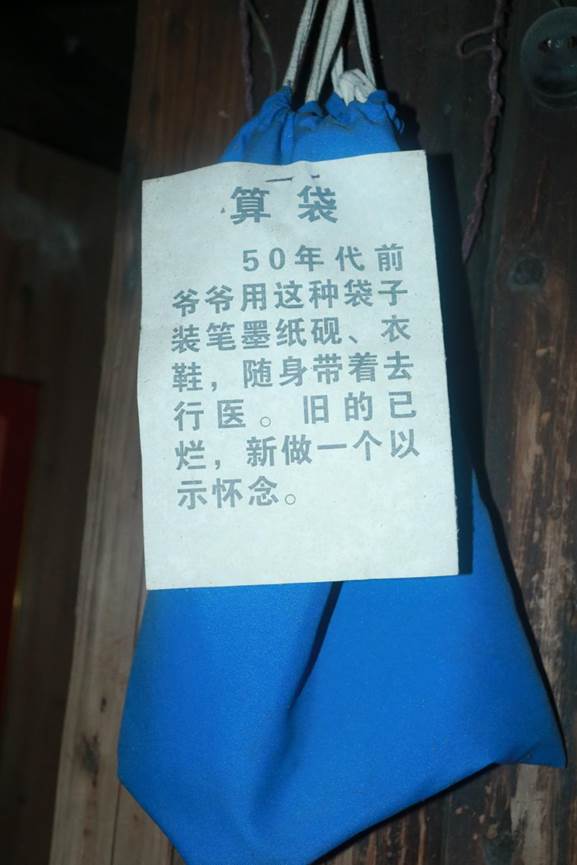 算袋
50年代前
爷爷用这种袋子
装笔墨纸砚、衣
鞋，随身带着去
行医。旧的已
烂，新做一个以
示怀念。